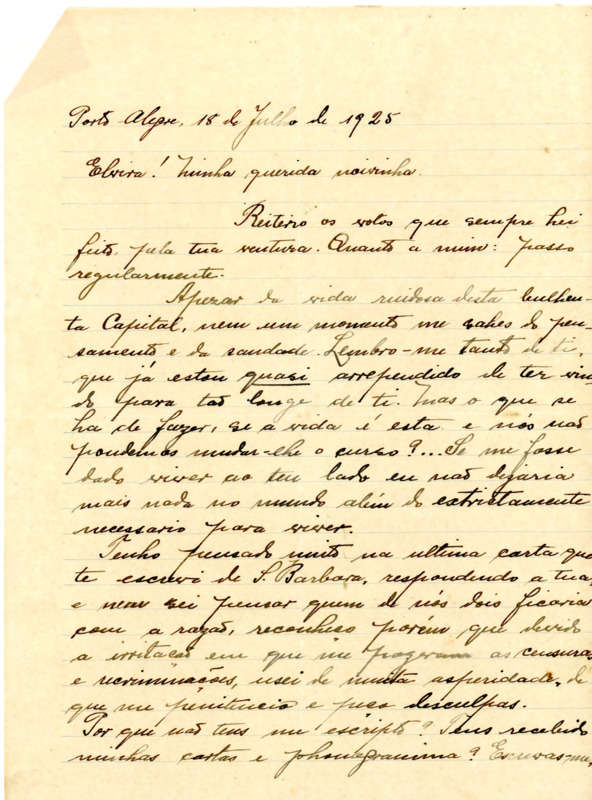 Porto Alegre, 18 de Julho de 1925
Elvira! Minha querida noivinha.
Reitero os votos que sempre hei
feito, pela tua ventura. Quanto a mim: passo
regularmente.
Apezar da vida ruidosa desta bulhen-
ta Capital, nem um momento me sahes do pen-
samento e da saudade. Lembro-me tanto de ti,
que já estou quasi arrependido de ter vin-
do para tão longe de ti. Mas o que se
ha de fazer, se a vida é esta e nós não
podemos mudar-lhe o curso?... Se me fosse
dado viver ao teu lado eu não dejaria
mais nada no mundo além do estrictamente
necessario para viver.
Tenho pensado muito na ultima carta que
te escrevi de S. Barbara, respondendo a tua,
e nem sei pensar quem de nós dois ficaria
com a razão, reconheço porém que devido
a irritação em que me as censuras
e recriminações, usei de muita asperidade, de
que me penitencio e peço desculpas.
Por que não tens me escripto? Tens recebido
minhas cartas e phonogramma? Escreva-me,